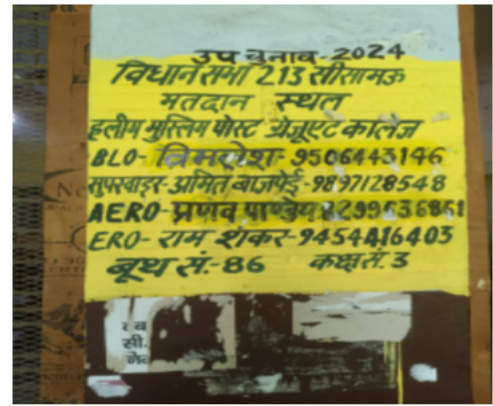 उप चुनाव-2024
विधानसभा 213 सीसामऊ
मतदान स्थल
हलीम मुस्लिम पोस्ट ग्रेजूएट कालेज
BLO- विमलेश- 9506443146
सुपरवाइर- अमित बाजपेई-9897128548
AERO- प्रणव पाण्डेय 8299636851
ERO- राम शंकर-9454416403
बूथ सं.-86 कक्ष सं. 3